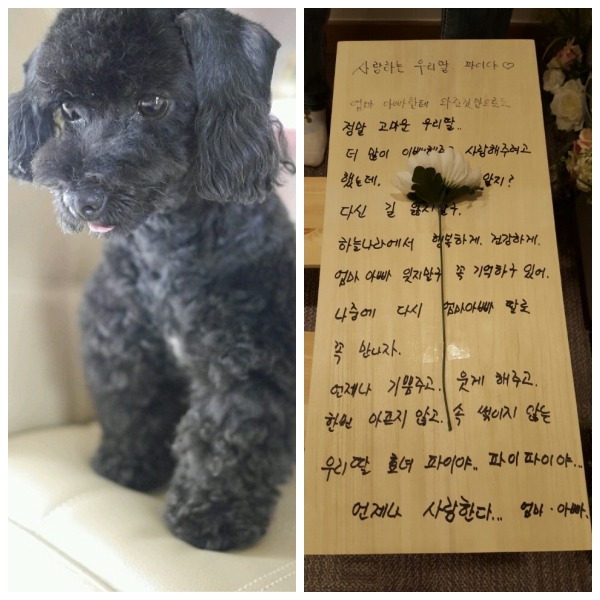 사랑하는 우리딸 파이야 ♡
엄마 아빠한테 와준것만으로도
정말 고마운 우리딸..
더 많이 이뻐해주고 사랑해주려고
했는데. 알지?
다신 길 잃지말구.
하늘나라에서 행복하게. 건강하게.
엄마 아빠 잊지말구 꼭 기억하구 있어.
나중에 다시 엄마아빠 딸로
꼭 만나자.
언제나 기쁨주고. 웃게 해주고.
한번 아프지 않고. 속 썪이지 않는
우리딸 효녀 파이야.. 파이파이야...
언제나 사랑한다... 엄마·아빠.